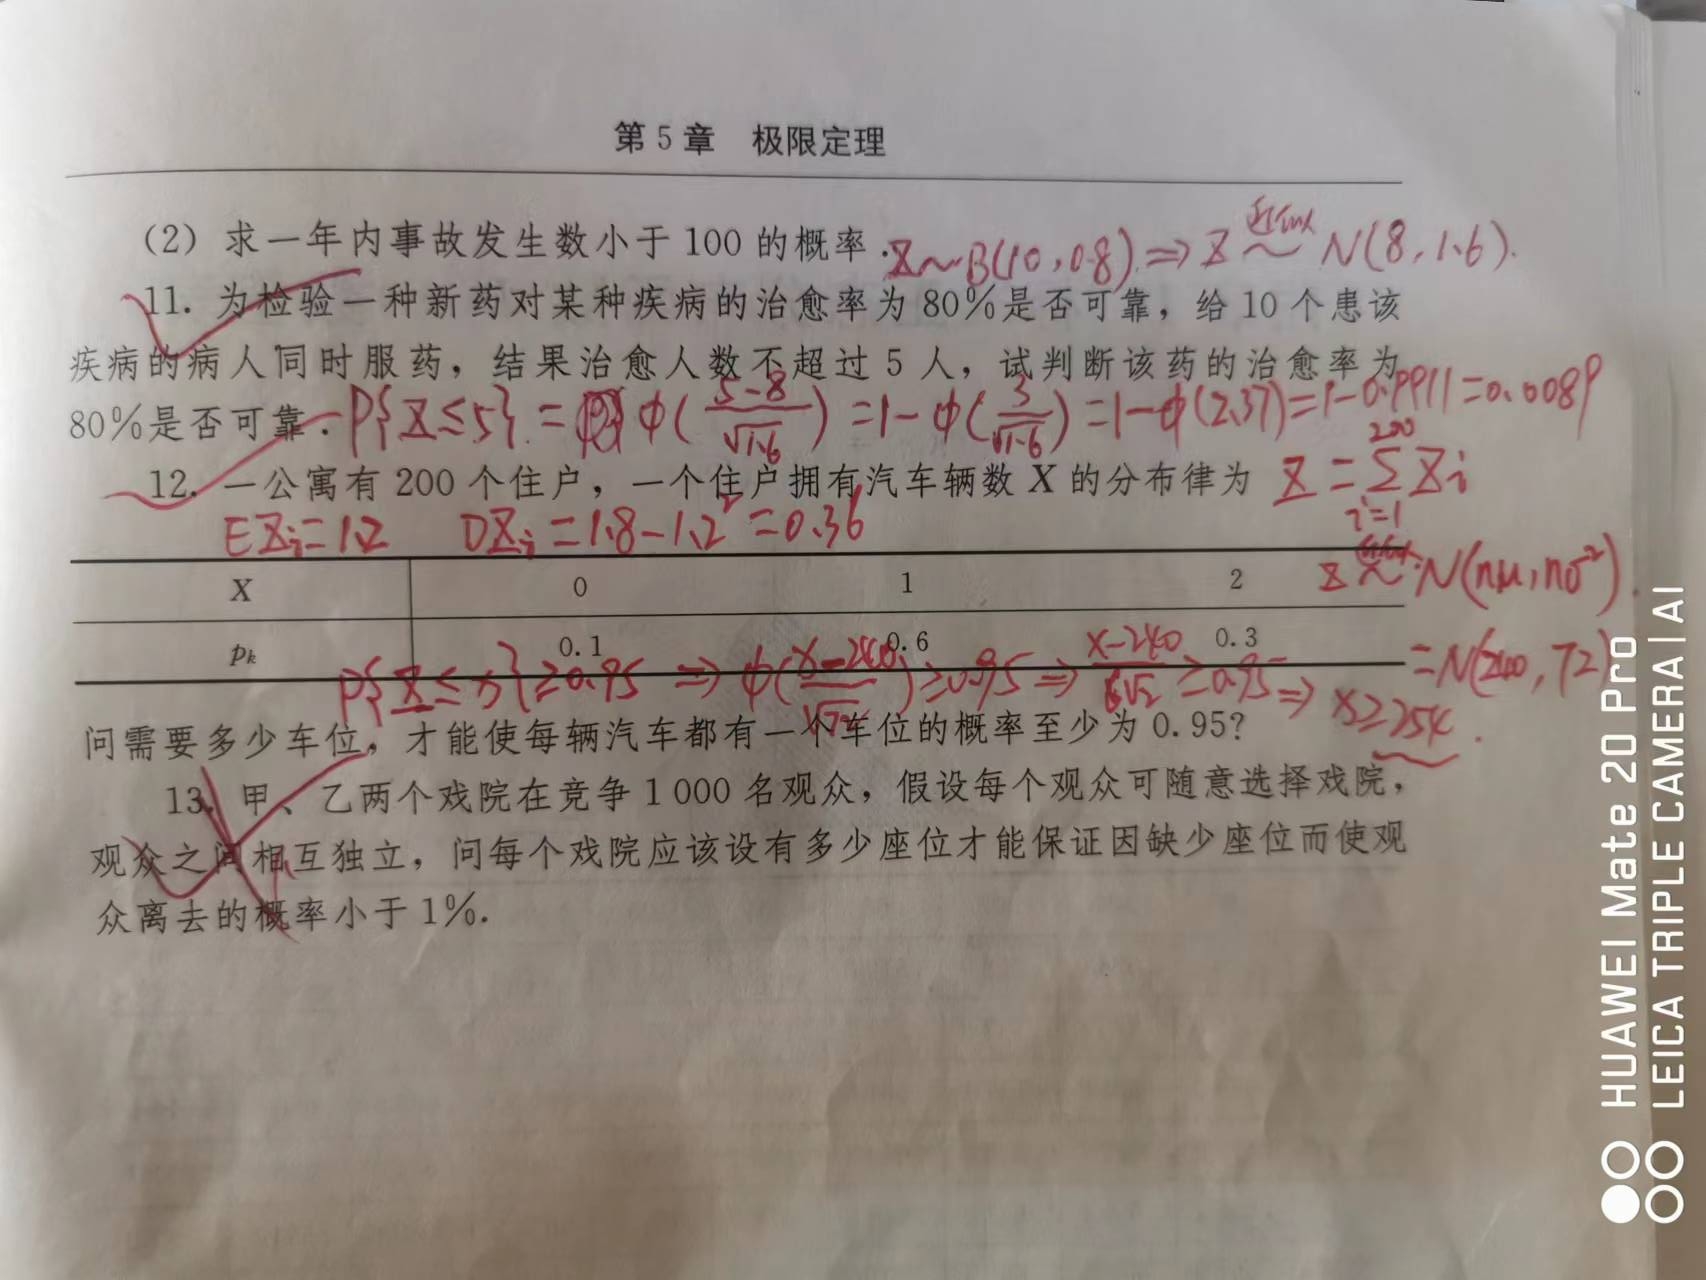 第5章 极限定理
(2) 求一年内事故发生数小于100的概率. X~B(10,0.8) ⇒ X ~ N(8,1.6).
11. 为检验一种新药对某种疾病的治愈率为80%是否可靠，给10个患该
疾病的病人同时服药，结果治愈人数不超过5人，试判断该药的治愈率为
80%是否可靠. P{X≤5} = Φ((5-8)/√1.6) = 1-Φ(3/√1.6) = 1-Φ(2.37) = 1-0.9911 = 0.0089
12. 一公寓有200个住户，一个住户拥有汽车辆数X的分布律为 X = Σ_{i=1}^{200} X_i
EX_i = 1.2 DX_i = 1.8-1.2² = 0.36
X 0 1 2 X ~ N(nμ, nσ²).
p_k 0.1 0.6 0.3 = N(240, 72)
P{X≤x}≥0.95 ⇒ Φ((x-240)/√72)≥0.95 ⇒ (x-240)/6√2 ≥ 0.95 ⇒ x≥254.
问需要多少车位，才能使每辆汽车都有一个车位的概率至少为0.95?
13. 甲、乙两个戏院在竞争1000名观众，假设每个观众可随意选择戏院，
观众之间相互独立，问每个戏院应该设有多少座位才能保证因缺少座位而使观
众离去的概率小于1%.
HUAWEI Mate 20 Pro
LEICA TRIPLE CAMERA | AI